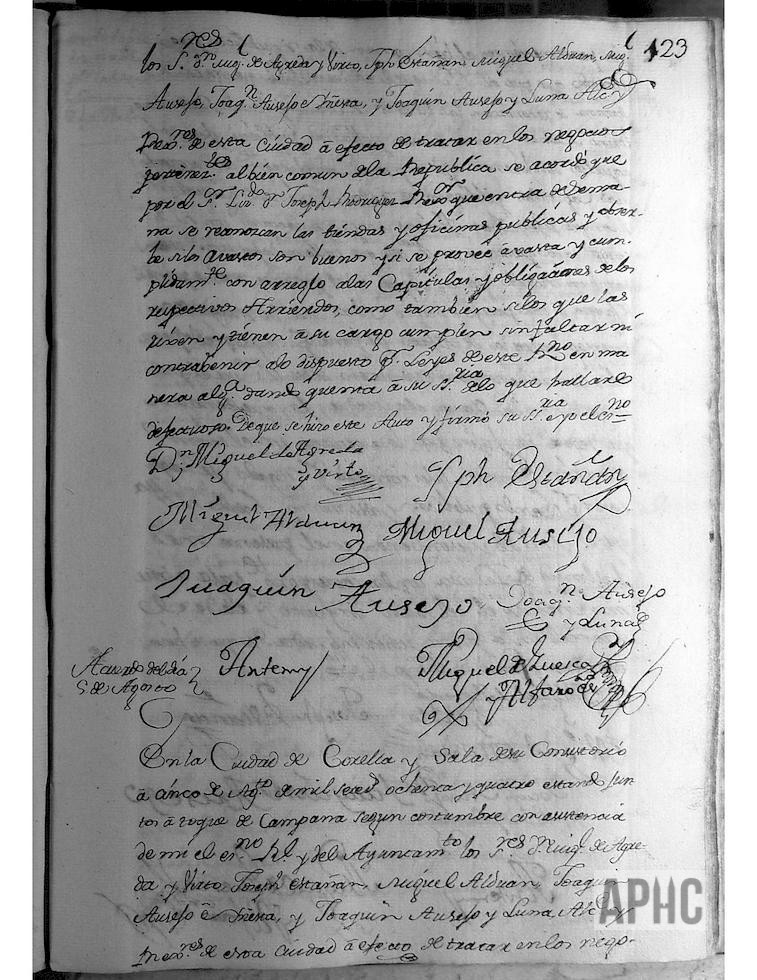 123
los S.res D.n Mig.l de Agreda y Virto, Jph Estañan Miguel Alduan, Mig.l
Ausejo, Joaq.n Ausejo è Yñesta, y Joaquin Ausejo y Luna Alc.e y
Rex.res de esta Ciudad à efecto de tratar en los negocios
pertenez.tes al bien comun de la Republica se acordò que
por el S.or Liz.do D.n Joseph Rodriguez Rex.or que entra de Sema-
na se reconozcan las tiendas y oficinas publicas y obser-
be si los avastos son buenos y si se provee à vasta y cum-
plidam.te con arreglo a las Capitulas y obligaciones de los
respectivos Arriendos, como tambien si los que las
sirven y tienen à su cargo cumplen sin faltar ni
contrabenir a lo dispuesto p.r Leyes de este R.no en ma
nera alg.a dando quenta à su S.ria de lo que hallare
defectuoso. De que se hizo este Auto y firmò su S.ria e yo el es.no
D.n Miguel de Agreda
y Virto
Jph Estañan
Miguel Alduan
Miguel Ausejo
Juaquin Ausejo
Joaq.n Ausejo
y Luna
Acuerdo del dia
5 de Agosto
Antemy
Miguel de Luesca
y Alfaro es.no
En la Ciudad de Corella y Sala de su Consistorio
à cinco de Ag.to de mil sete.s ochenta y quatro estando jun
tos à toque de Campana segun costumbre con asistencia
de mi el es.no Rl. y del Ayuntam.to los S.res D.n Mig.l de Agre-
da y Virto, Joseph Estañan, Miguel Alduan, Joaquin
Ausejo è Yñesta, y Joaquin Ausejo y Luna Alc.e y
Rex.res de esta Ciudad à efecto de tratar en los nego-
APHC